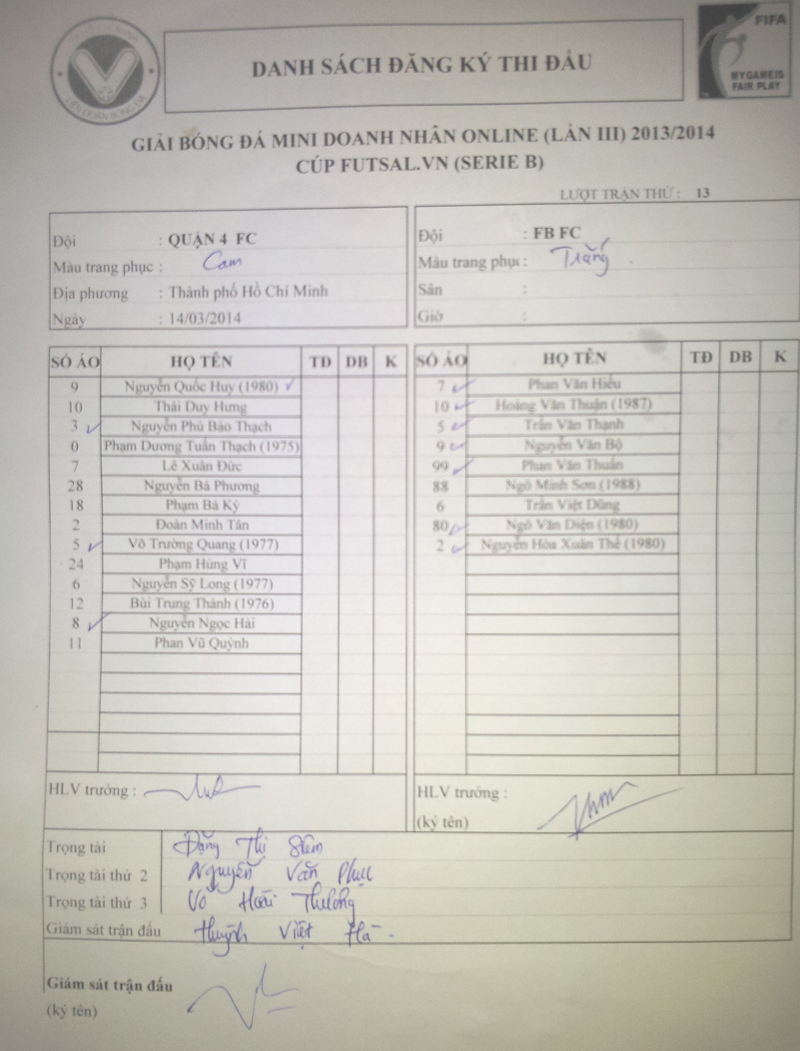 LIÊN ĐOÀN BÓNG ĐÁ
DANH SÁCH ĐĂNG KÝ THI ĐẤU
FIFA
MYGAMEIS
FAIR PLAY
GIẢI BÓNG ĐÁ MINI DOANH NHÂN ONLINE (LẦN III) 2013/2014
CÚP FUTSAL.VN (SERIE B)
LƯỢT TRẬN THỨ : 13
Đội : QUẬN 4 FC
Màu trang phục : Cam
Địa phương : Thành phố Hồ Chí Minh
Ngày : 14/03/2014
Đội : FB FC
Màu trang phục : Trắng
Sân :
Giờ :
SỐ ÁO HỌ TÊN TĐ DB K
9 Nguyễn Quốc Huy (1980)
10 Thái Duy Hưng
3 Nguyễn Phú Bảo Thạch
0 Phạm Dương Tuấn Thạch (1975)
7 Lê Xuân Đức
28 Nguyễn Bá Phương
18 Phạm Bá Kỳ
2 Đoàn Minh Tân
5 Võ Trường Quang (1977)
24 Phạm Hùng Vĩ
6 Nguyễn Sỹ Long (1977)
12 Bùi Trung Thành (1976)
8 Nguyễn Ngọc Hải
11 Phan Vũ Quỳnh
SỐ ÁO HỌ TÊN TĐ DB K
7 Phan Văn Hiếu
10 Hoàng Văn Thuận (1987)
5 Trần Văn Thạnh
9 Nguyễn Văn Bộ
99 Phan Văn Thuấn
88 Ngô Minh Sơn (1988)
6 Trần Việt Dũng
80 Ngô Văn Diện (1980)
2 Nguyễn Hòa Xuân Thế (1980)
HLV trưởng :
HLV trưởng :
(ký tên)
Trọng tài Đặng Thị
Trọng tài thứ 2 Nguyễn Văn Phục
Trọng tài thứ 3 Võ Hoài Thương
Giám sát trận đấu Huỳnh Việt Hà
Giám sát trận đấu
(ký tên)